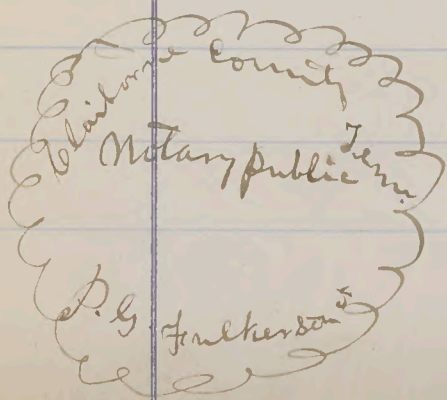 Claiborne County
Tenn.
Notary Public
P. G. Fulkerson